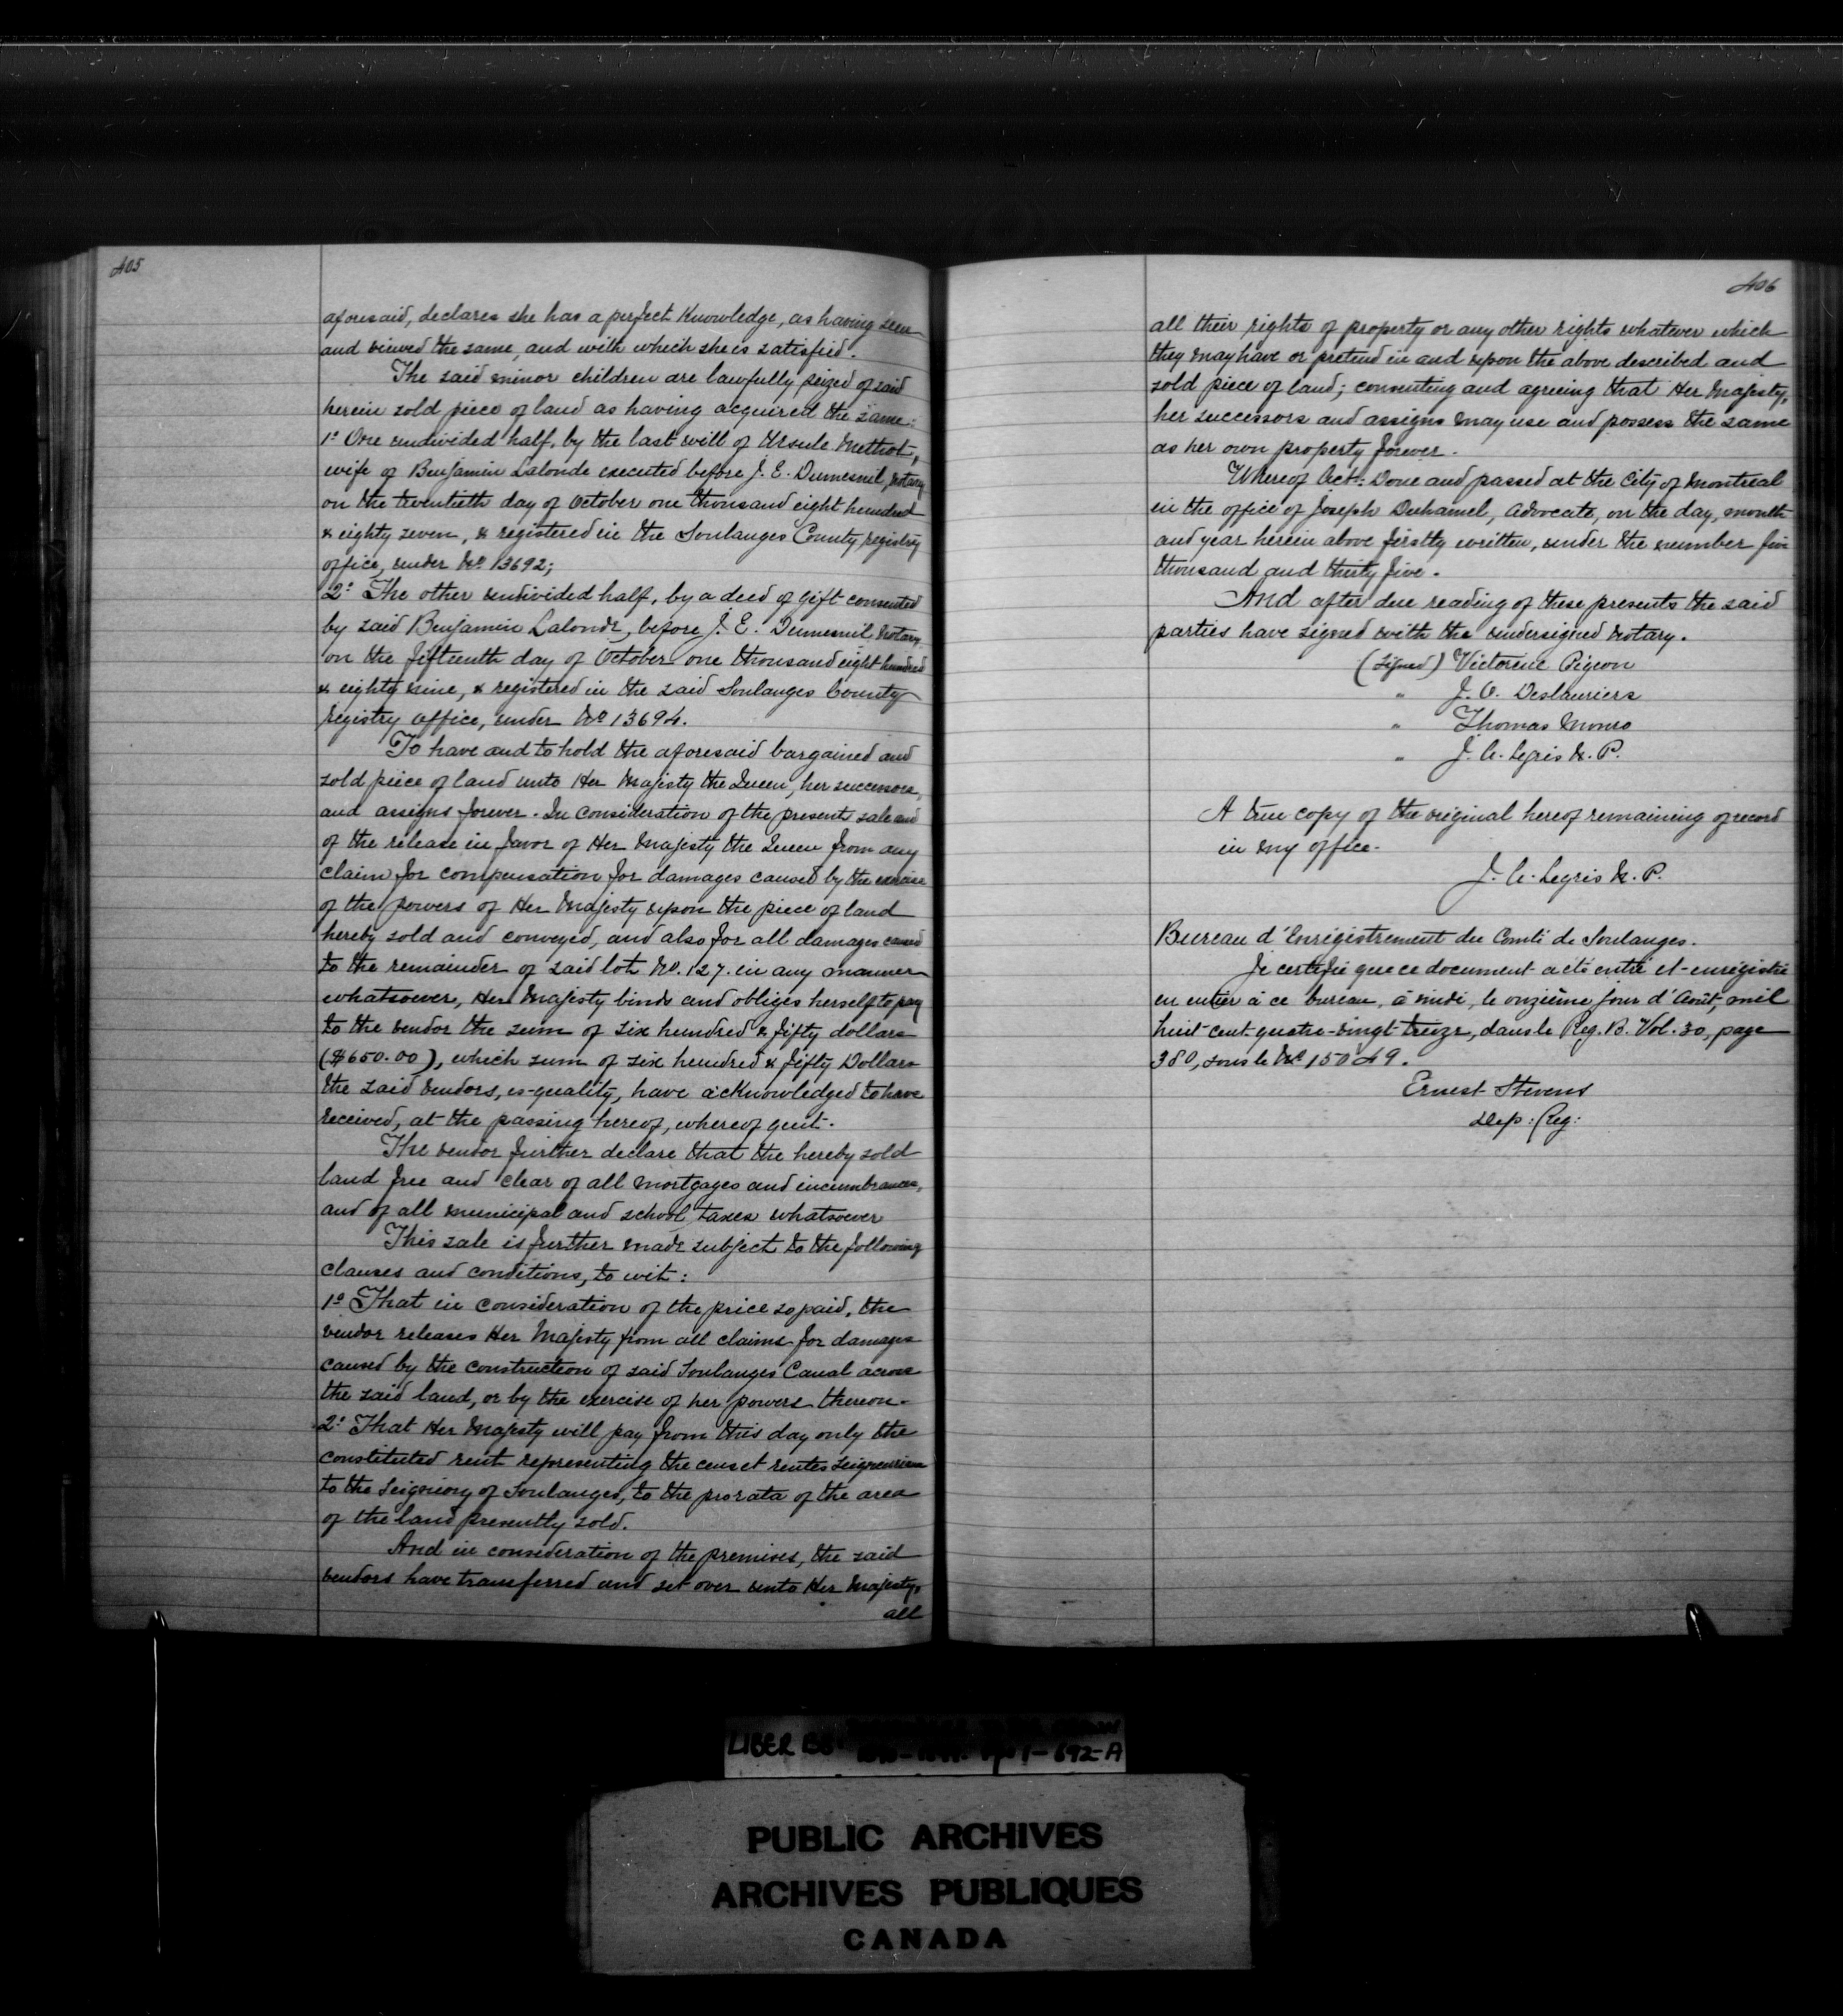 405
aforesaid, declares she has a perfect Knowledge, as having seen
and viewed the same, and with which she is satisfied.
The said minor children are lawfully seized of said
herein sold piece of land as having acquired the same:
1º One undivided half, by the last will of Ursule Methot,
wife of Benjamin Lalonde executed before J. E. Dumesnil, Notary
on the twentieth day of October one thousand eight hundred
& eighty seven, & registered in the Soulanges County registry
office, under No. 13692;
2º The other undivided half, by a deed of gift consented
by said Benjamin Lalonde, before J. E. Dumesnil Notary
on the fifteenth day of October one thousand eight hundred
& eighty nine, & registered in the said Soulanges County
registry office, under No 13694.
To have and to hold the aforesaid bargained and
sold piece of land unto Her Majesty the Queen, her successors,
and assigns forever. In consideration of the present sale and
of the release in favor of Her Majesty the Queen from any
claim for compensation for damages caused by the exercise
of the powers of Her Majesty upon the piece of land
hereby sold and conveyed, and also for all damages caused
to the remainder of said lot No. 127. in any manner
whatsoever, Her Majesty binds and obliges herself to pay
to the vendor the sum of six hundred & fifty dollars
($650.00), which sum of six hundred & fifty Dollars
the said vendors, es-quality, have acknowledged to have
received, at the passing hereof, whereof quit.
The vendor further declare that the hereby sold
land free and clear of all mortgages and incumbrances,
and of all municipal and school taxes whatsoever
This sale is further made subject to the following
clauses and conditions, to wit:
1º That in consideration of the price so paid, the
vendor releases Her Majesty from all claims for damages
caused by the construction of said Soulanges Canal across
the said land, or by the exercise of her powers thereon.
2º That Her Majesty will pay from this day only the
constituted rent representing the cens et rentes
to the Seigniory of Soulanges, to the pro rata of the area
of the land presently sold.
And in consideration of the premises, the said
vendors have transferred and set over unto Her Majesty,
all
406
all their rights of property or any other rights whatever which
they may have or pretend in and upon the above described and
sold piece of land; consenting and agreeing that Her Majesty,
her successors and assigns may use and possess the same
as her own property forever.
Whereof Act: Done and passed at the City of Montreal
in the office of Joseph Duhamel, Advocate, on the day, month
and year herein above firstly written, under the number five
thousand and thirty five.
And after due reading of these presents the said
parties have signed with the undersigned Notary.
(Signed) Victorine Pigeon
" J. O. Deslauriers
" Thomas Monro
" J. A. Legris N. P.
A true copy of the original hereof remaining of record
in my office.
J. A. Legris N. P.
Bureau d'Enrégistrement du Comté de Soulanges.
Je certifie que ce document a été entré et enrégistré
en entier à ce bureau, à midi, le onzième jour d'Août, mil
huit-cent-quatre-vingt-treize, dans le Reg. B. Vol. 30, page
380, sous le No 15049.
Ernest Stevens
Dep: Reg:
LIBER
692-A
PUBLIC ARCHIVES
ARCHIVES PUBLIQUES
CANADA